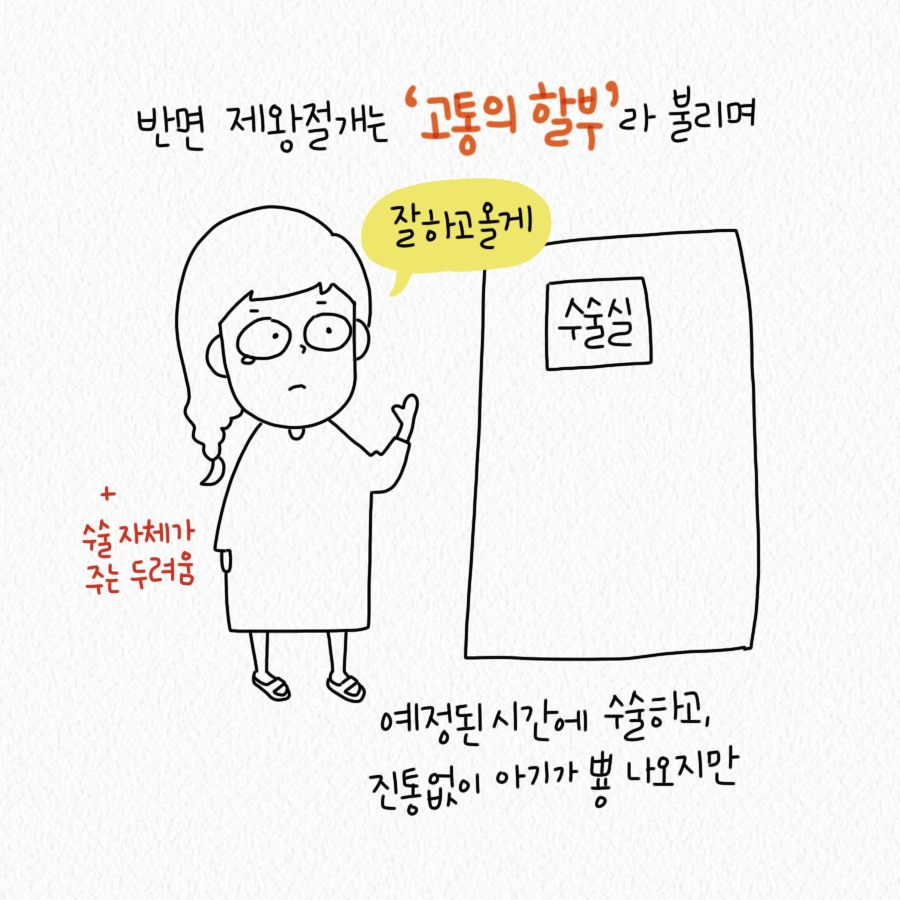 반면 제왕절개는 '고통의 할부'라 불리며
잘하고올게
수술실
+
수술 자체가
주는 두려움
예정된 시간에 수술하고,
진통없이 아기가 뿅 나오지만